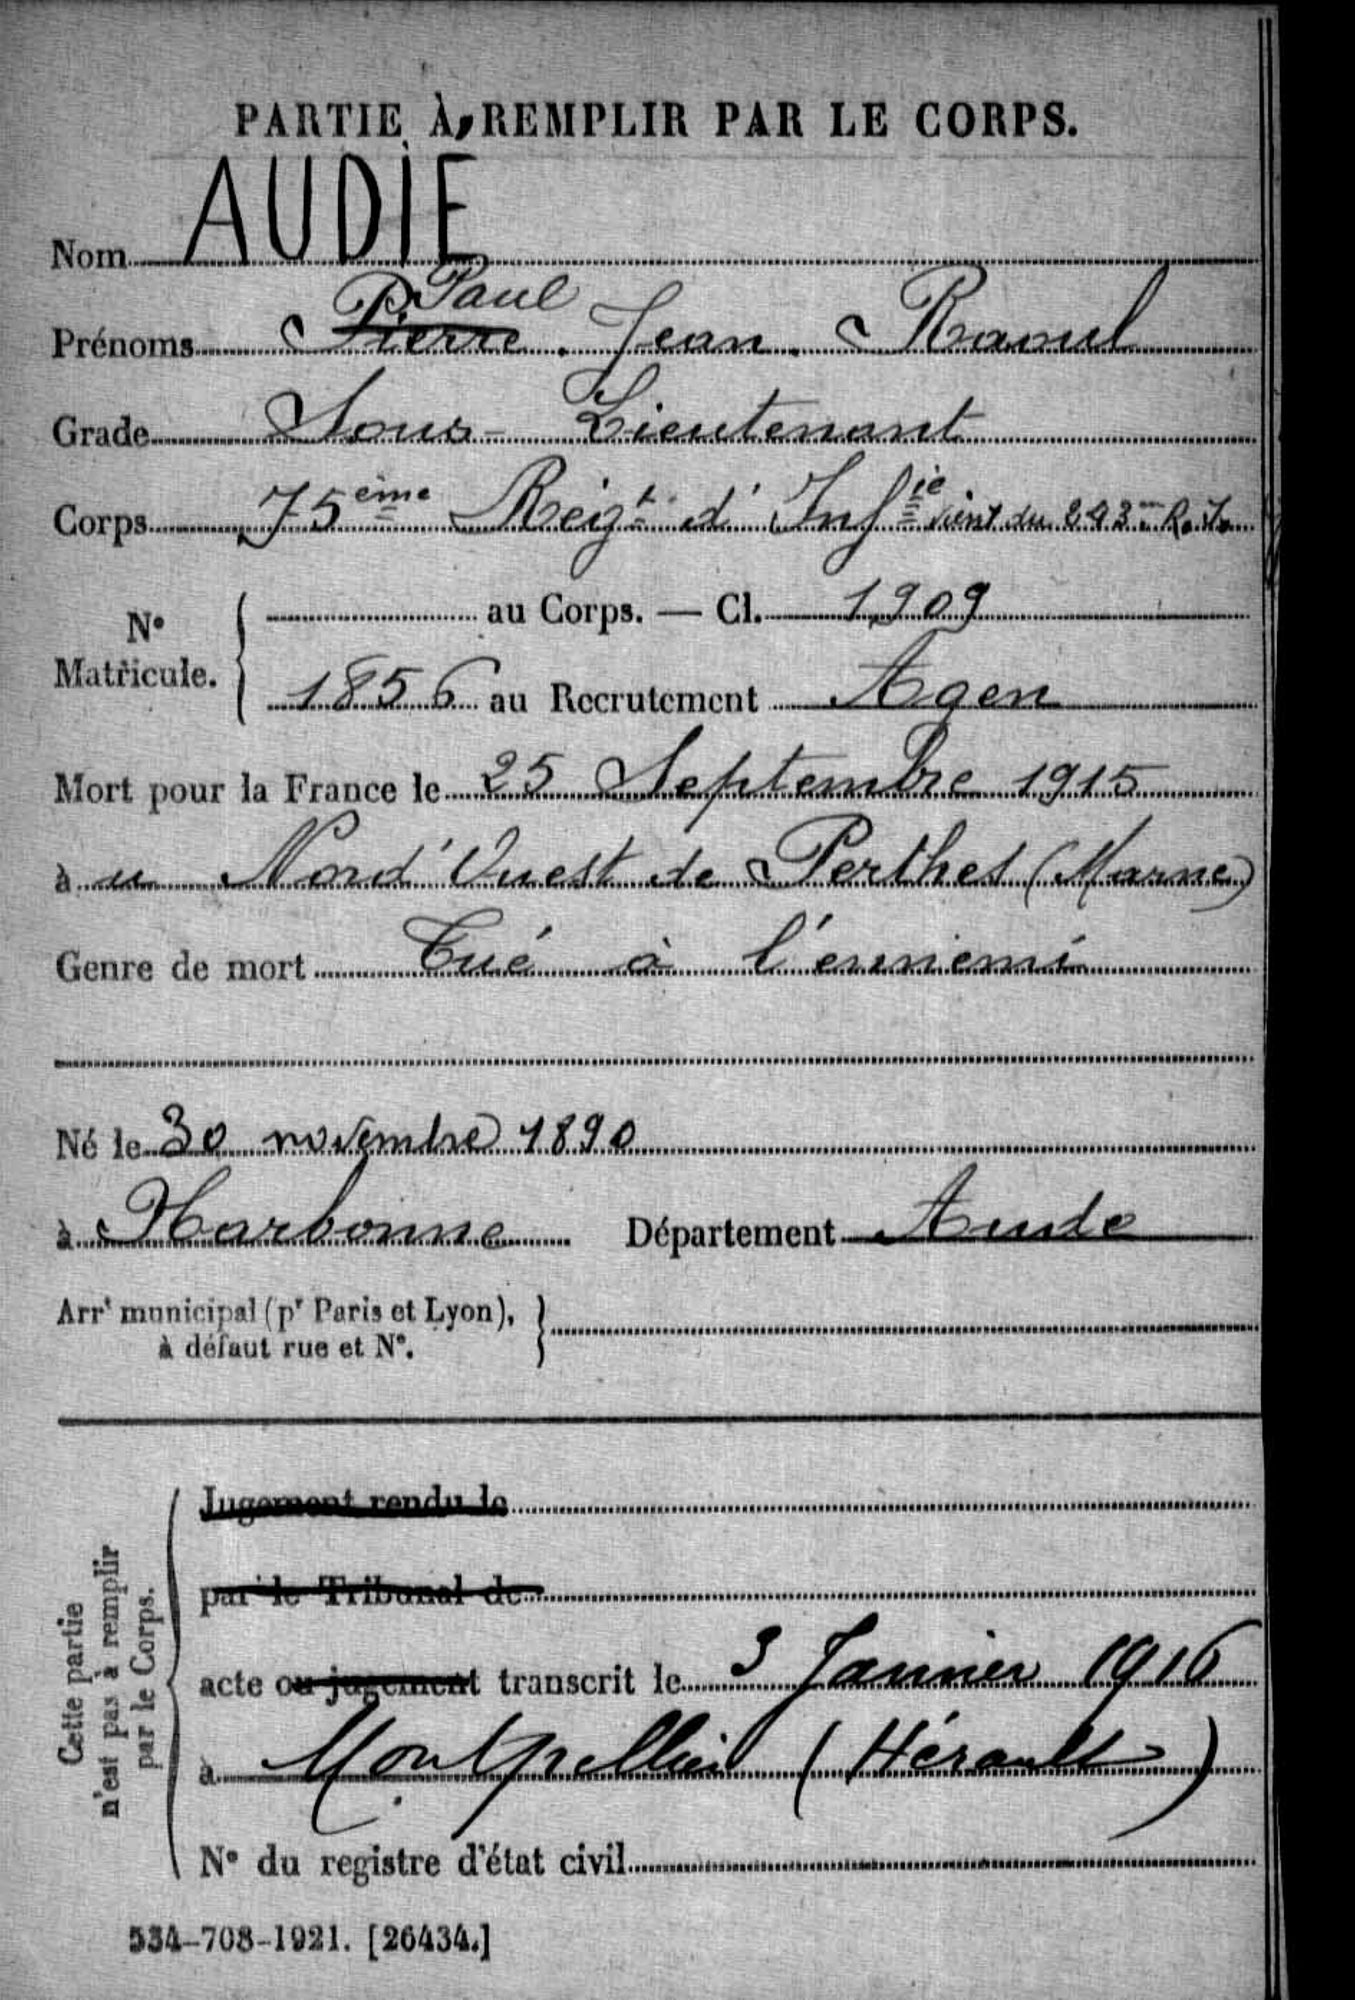 PARTIE À REMPLIR PAR LE CORPS.
Nom AUDIE
Paul
Prénoms Pierre. Jean. Raoul
Grade Sous-Lieutenant
Corps 75ème Régt d'Infie vient du 243me R.I.
N° Matricule. { au Corps. — Cl. 1909
1856 au Recrutement Agen
Mort pour la France le 25 Septembre 1915
à u Nord'Ouest de Perthes (Marne)
Genre de mort Tué à l'ennemi
Né le 30 novembre 1890
à Narbonne Département Aude
Arrt municipal (pr Paris et Lyon), }
à défaut rue et N°.
Cette partie n'est pas à remplir par le Corps.
Jugement rendu le
par le Tribunal de
acte ou jugement transcrit le 3 Janvier 1916
à Montpellier (Hérault)
N° du registre d'état civil
534-708-1921. [26434.]